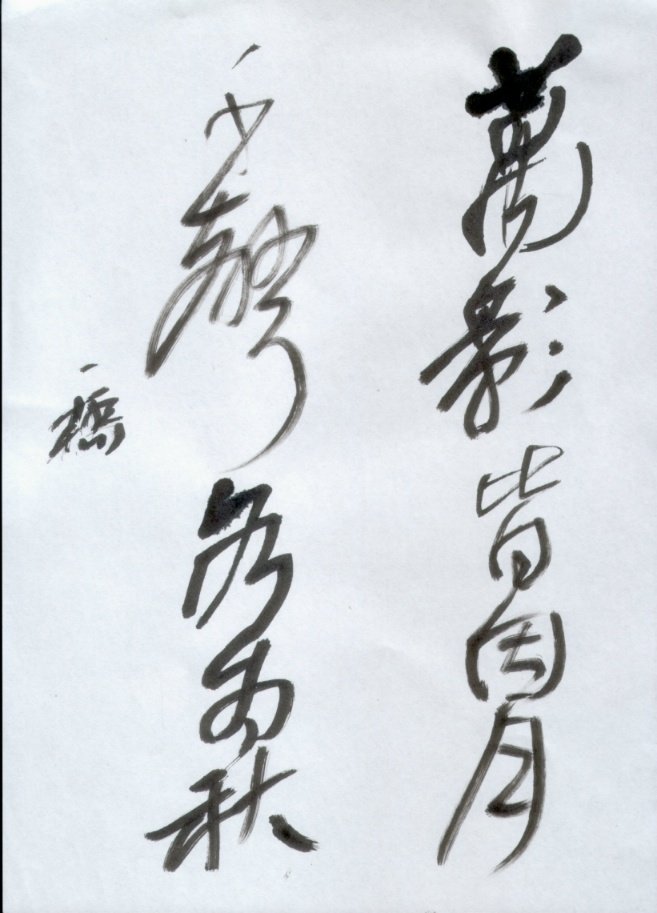 萬影皆因月
千聲各為秋
一橋